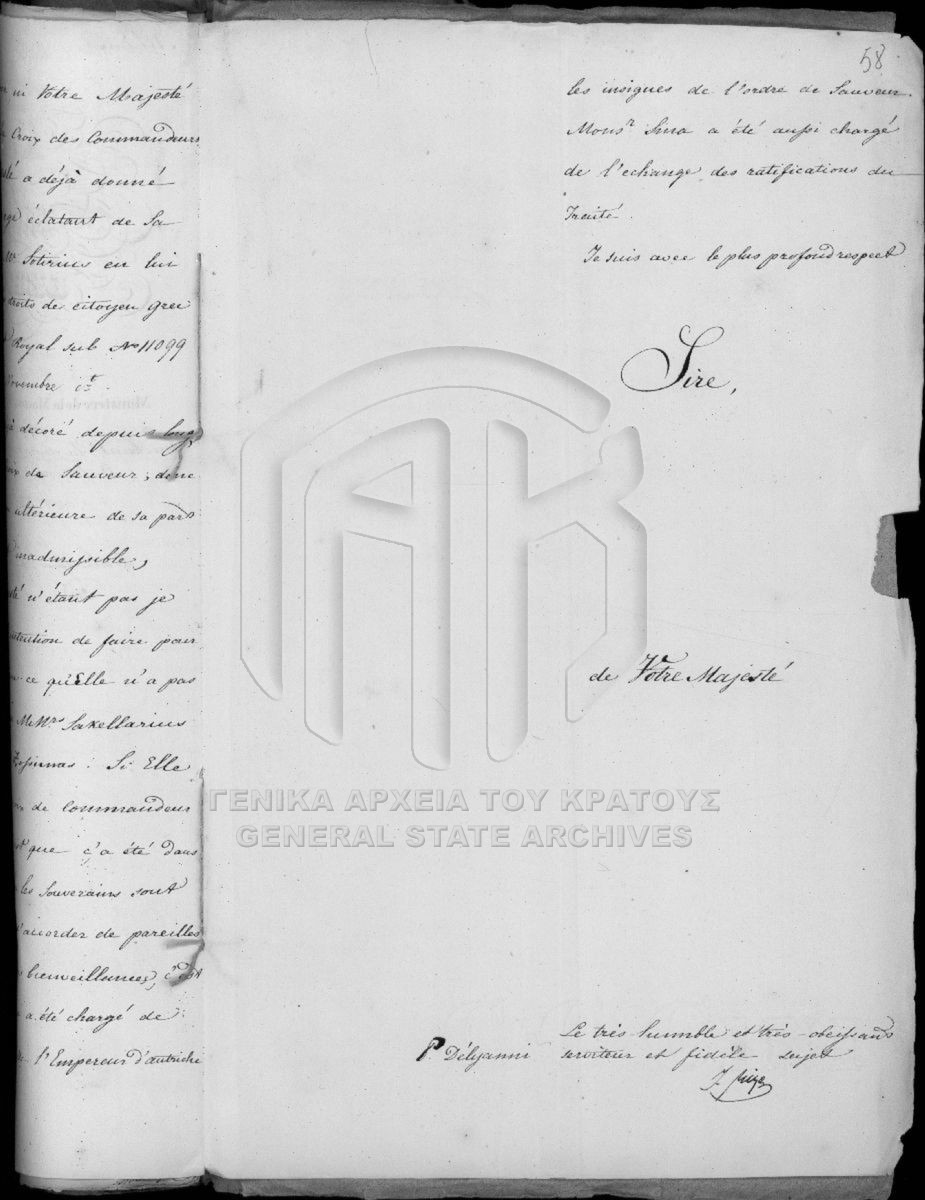 58
ni Votre Majesté
Croix des Commandeurs
a déjà donné
éclatant de Sa
Mr Sotirius en lui
droits de citoyen grec
Royal sub No 11099
Novembre ct.
décoré depuis long
de Sauveur; donc
ultérieure de sa part
inadmissible,
n'étant pas je
intention de faire pour
ce qu'Elle n'a pas
MeMrs Sakellarius
Si Elle
de Commandeur
que c'a été dans
les Souverains sont
d'accorder de pareilles
bienveillances, c'est
a été chargé de
l'Empereur d'autriche
les insignes de l'ordre de Sauveur.
Monsr Sina a été aussi chargé
de l'echange des ratifications du
Traité.
Je suis avec le plus profond respect
Sire,
de Votre Majesté
Le très-humble et très-obeissant
serviteur et fidèle sujet
P. Délyanni
ΓΕΝΙΚΑ ΑΡΧΕΙΑ ΤΟΥ ΚΡΑΤΟΥΣ
GENERAL STATE ARCHIVES